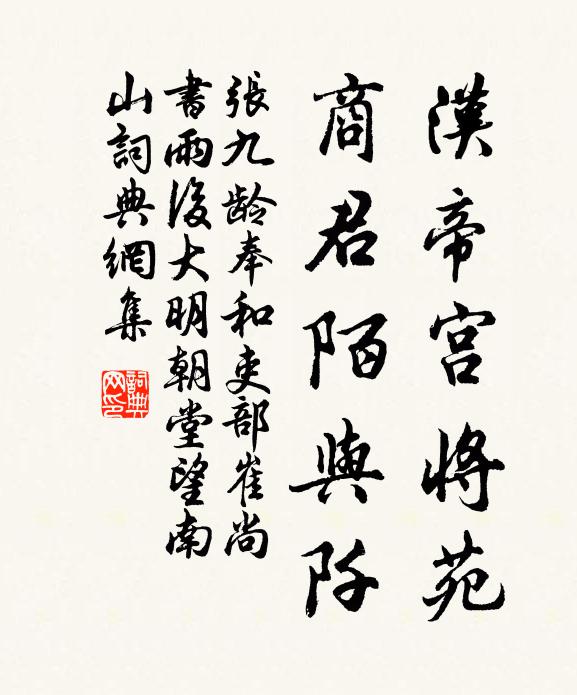 漢帝宮將苑
商君陌與阡
張九齡奉和吏部崔尚
書雨後大明朝堂望南
山詞典網集
詞典
网印